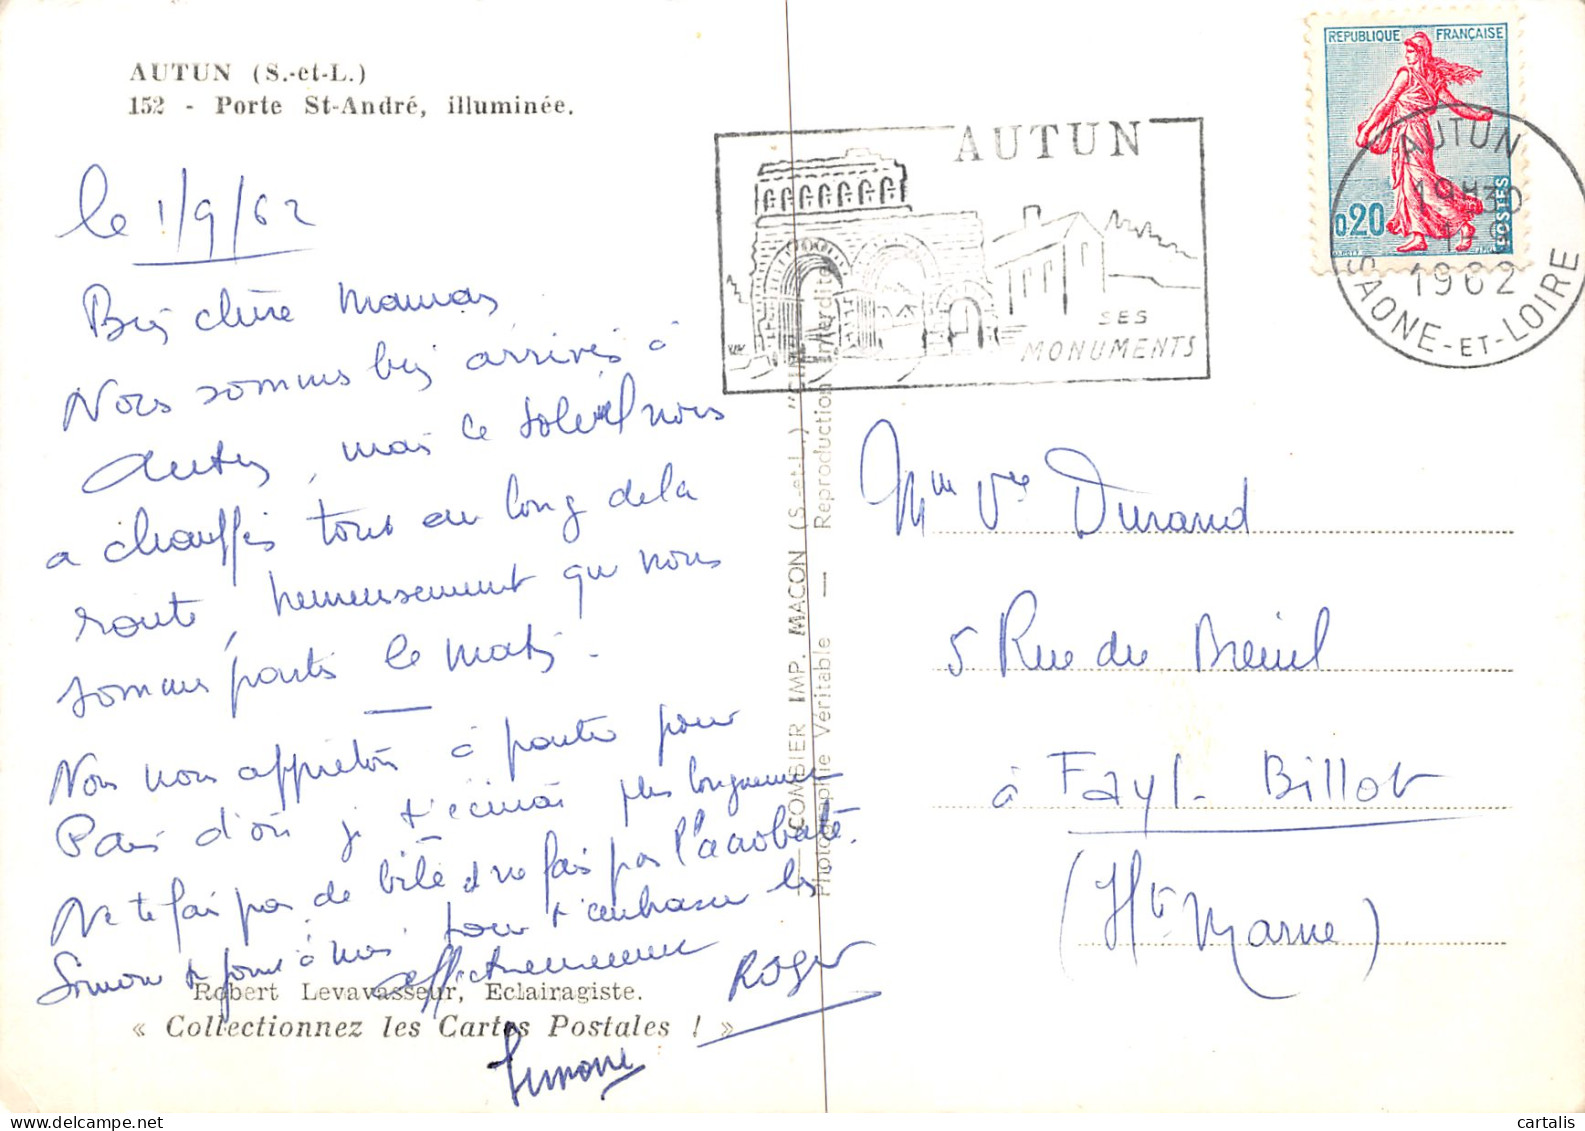 AUTUN (S.-et-L.)
152 - Porte St-André, illuminée.
le 1/9/62
Bien chère Maman
Nous sommes bien arrivés à
Autun, mais le soleil nous
a chauffés tout au long de la
route, heureusement que nous
sommes partis le matin.
Nous nous apprêtons à partir pour
Paris d'où je t'écrirai plus longuement
Ne te fais pas de bile et ne fais pas l'acrobate.
Simone se joint à moi pour t'embrasser bien
affectueusement
Roger
Simone
Robert Levavasseur, Eclairagiste.
« Collectionnez les Cartes Postales ! »
COMBIER IMP. MACON (S.-et-L.) "CIM"
Photographie Véritable — Reproduction interdite
AUTUN
SES
MONUMENTS
REPUBLIQUE FRANÇAISE
0,20
POSTES
AUTUN
19H30
1-9
1962
SAONE-ET-LOIRE
Mme Vve Durand
5 Rue du Breuil
à Fayl-Billot
(Hte Marne)
cartalis